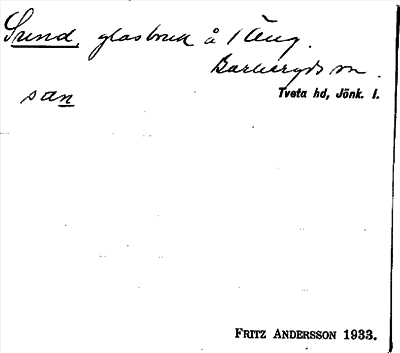 Sund, glasbruk å 1 Äng.
Barkeryds sn.
Tveta hd, Jönk. l.
san
FRITZ ANDERSSON 1933.